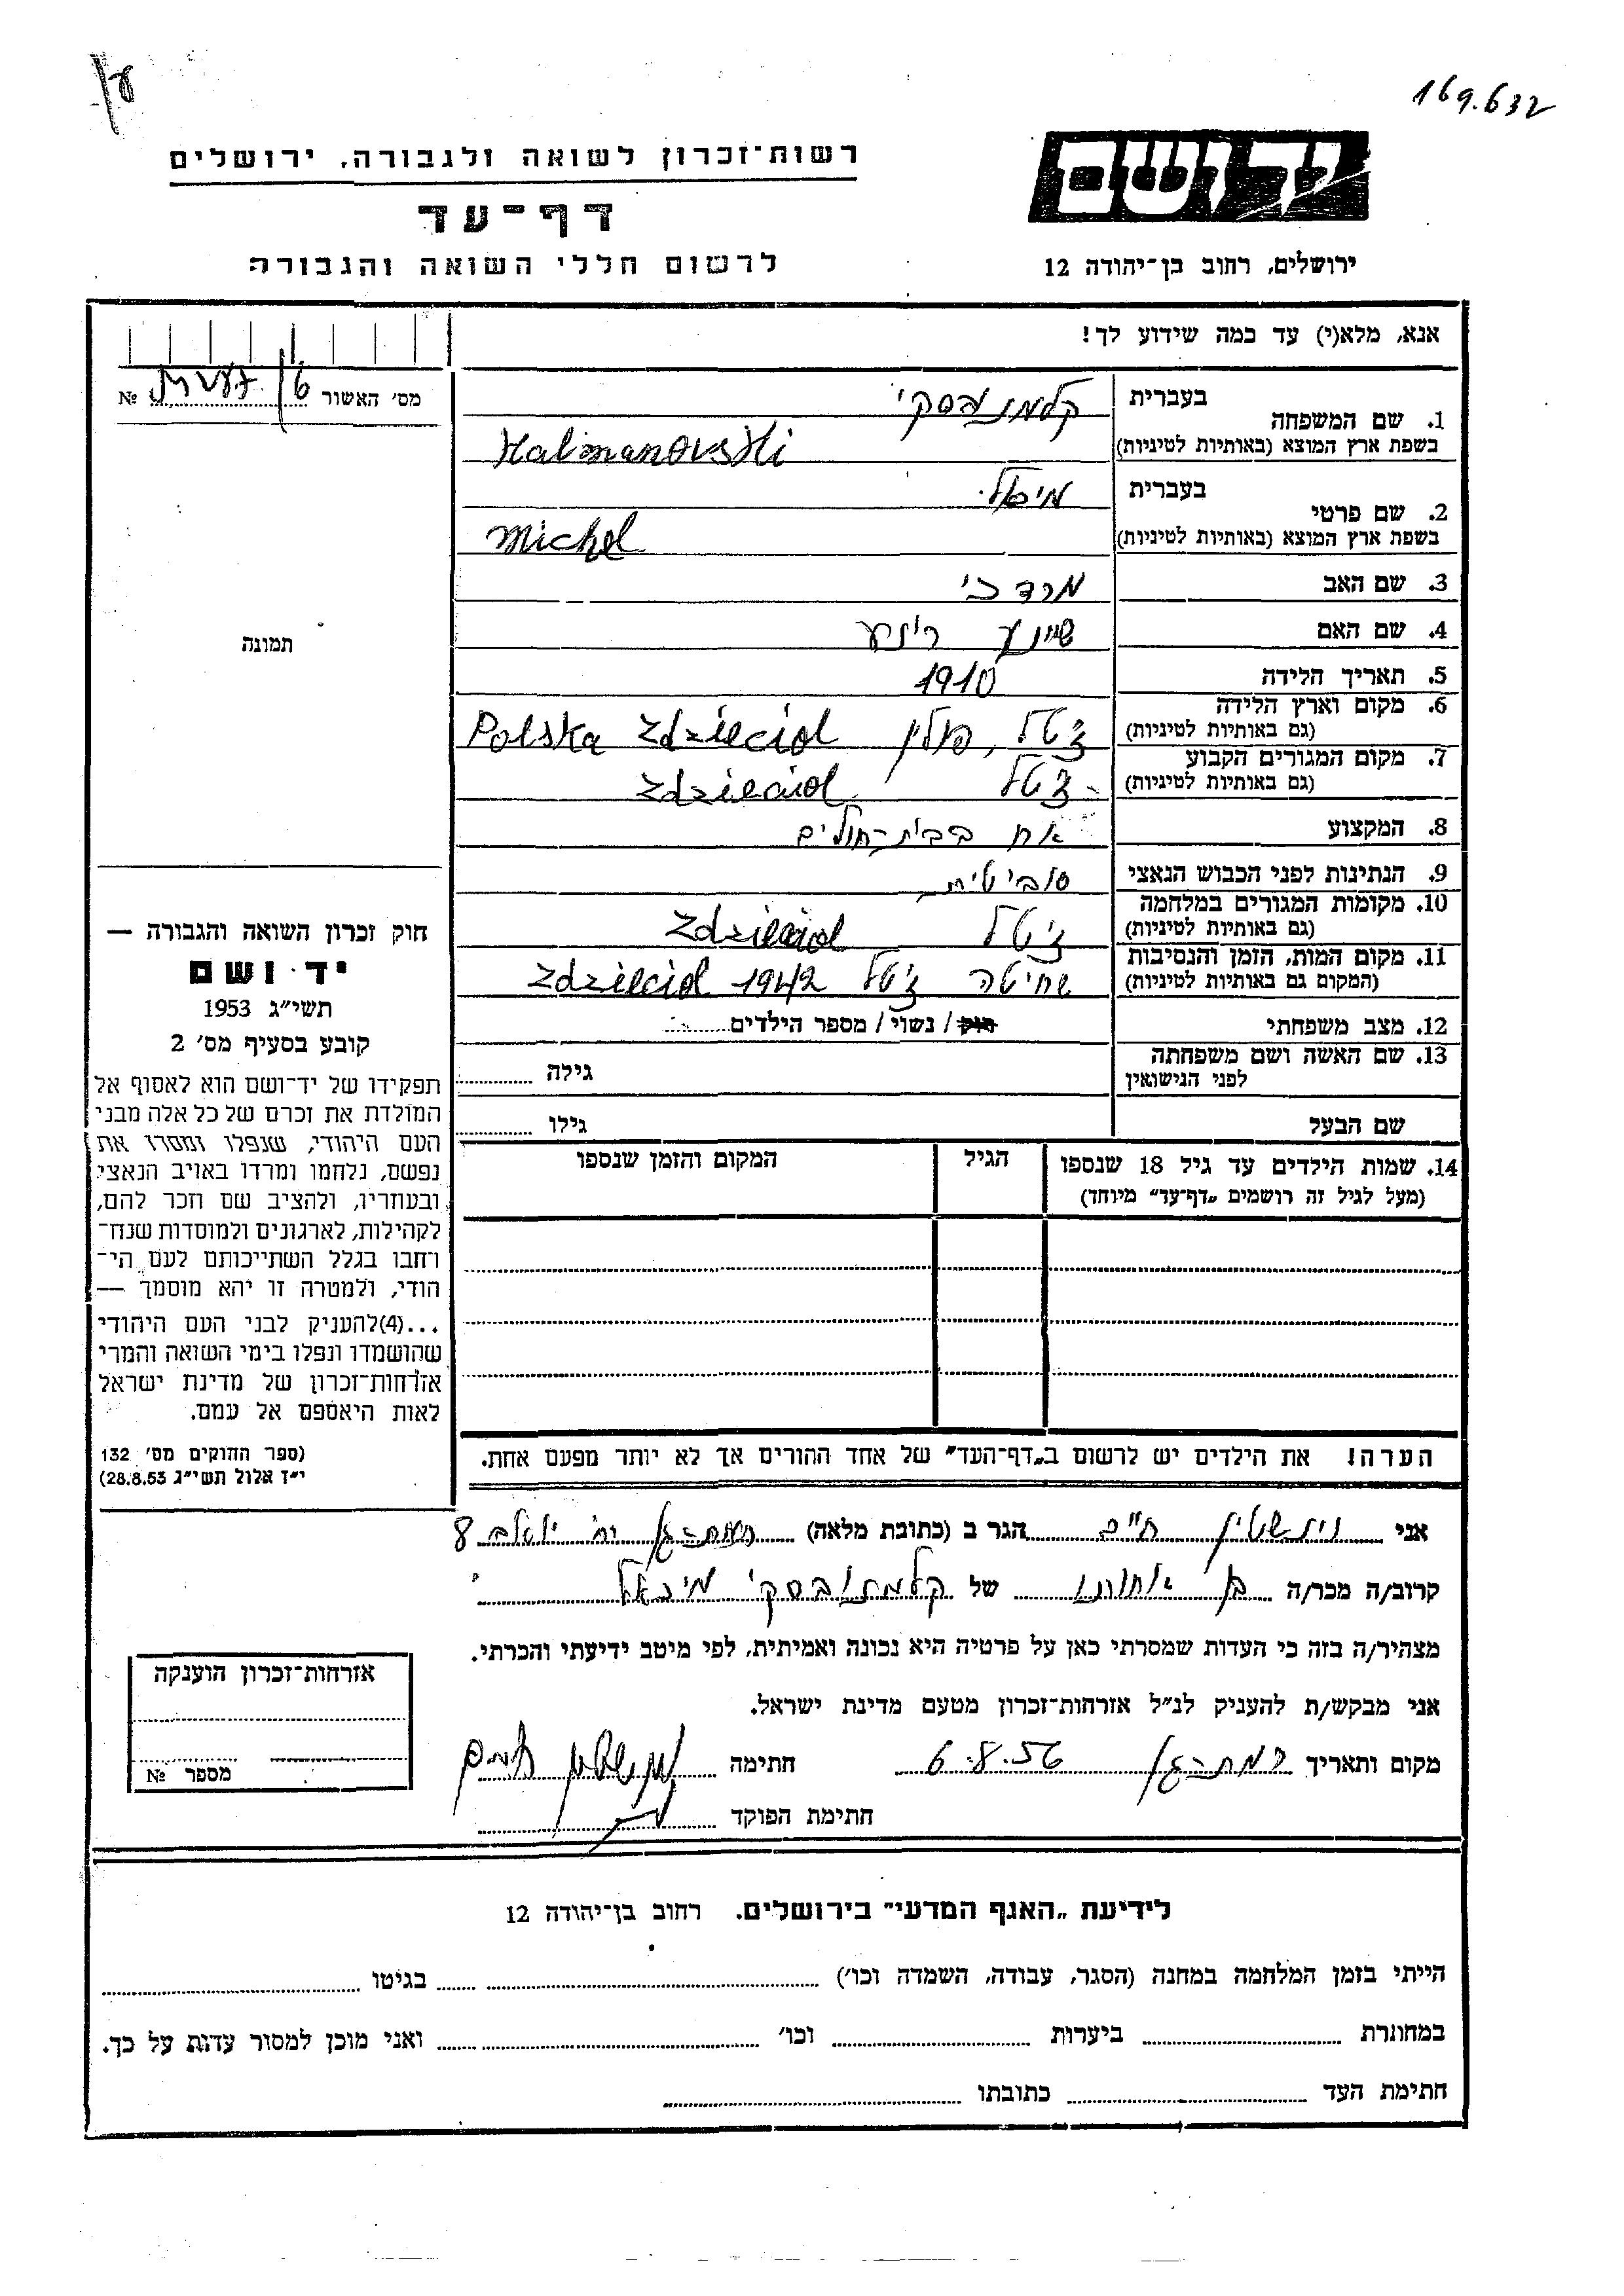 169.632
יד ושם
רשות־זכרון לשואה ולגבורה, ירושלים
דף־עד
לרשום חללי השואה והגבורה
ירושלים, רחוב בן־יהודה 12
אנא, מלא(י) עד כמה שידוע לך!
מס' האשור № 
1. שם המשפחה בעברית קלמנובסקי
בשפת ארץ המוצא (באותיות לטיניות) Kalmanovski
2. שם פרטי בעברית מיכאל
בשפת ארץ המוצא (באותיות לטיניות) Michel
3. שם האב מרדכי
4. שם האם שיינע ריינע
5. תאריך הלידה 1910
6. מקום וארץ הלידה (גם באותיות לטיניות) ז'טל, פולין Polska Zdzieciol
7. מקום המגורים הקבוע (גם באותיות לטיניות) ז'טל Zdzieciol
8. המקצוע אח בבית-חולים
9. הנתינות לפני הכבוש הנאצי סוביטית
10. מקומות המגורים במלחמה (גם באותיות לטיניות) ז'טל Zdzieciol
11. מקום המות, הזמן והנסיבות (המקום גם באותיות לטיניות) שחיטה ז'טל 1942 Zdzieciol
12. מצב משפחתי רווק / נשוי / מספר הילדים
13. שם האשה ושם משפחתה לפני הנישואין גילה
שם הבעל גילו
14. שמות הילדים עד גיל 18 שנספו הגיל המקום והזמן שנספו
(מעל לגיל זה רושמים „דף־עד" מיוחד)
הערה! את הילדים יש לרשום ב„דף־העד" של אחד ההורים אך לא יותר מפעם אחת.
תמונה
חוק זכרון השואה והגבורה —
יד ושם
תשי"ג 1953
קובע בסעיף מס' 2
תפקידו של יד־ושם הוא לאסוף אל
המולדת את זכרם של כל אלה מבני
העם היהודי, שנפלו ומסרו את
נפשם, נלחמו ומרדו באויב הנאצי
ובעוזריו, ולהציב שם וזכר להם,
לקהילות, לארגונים ולמוסדות שנח־
רחבו בגלל השתייכותם לעם הי־
הודי, ולמטרה זו יהא מוסמך —
...(4)להעניק לבני העם היהודי
שהושמדו ונפלו בימי השואה והמרי
אזרחות־זכרון של מדינת ישראל
לאות היאספם אל עמם.
(ספר החוקים מס' 132
י"ז אלול תשי"ג 28.8.53)
אני חיים הגר ב (כתובת מלאה) רמת-גן 8
קרוב/ה מכר/ה בן אחותו של קלמנובסקי מיכאל
מצהיר/ה בזה כי העדות שמסרתי כאן על פרטיה היא נכונה ואמיתית, לפי מיטב ידיעתי והכרתי.
אני מבקש/ת להעניק לנ"ל אזרחות־זכרון מטעם מדינת ישראל.
מקום ותאריך רמת-גן 6.8.56 חתימה
חתימת הפוקד
אזרחות־זכרון הוענקה
מספר №
לידיעת „האגף המדעי" בירושלים. רחוב בן־יהודה 12
הייתי בזמן המלחמה במחנה (הסגר, עבודה, השמדה וכו') בגיטו
במחתרת ביערות וכו' ואני מוכן למסור עדות על כך.
חתימת העד כתובתו